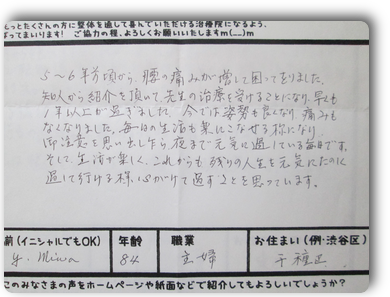 もっとたくさんの方に整体を通して喜んでいただける治療院になるよう、
ばってまいります！ ご協力の程、よろしくお願いいたしますm(__)m
5〜6年方頃から、腰の痛みが増して困っておりました。
知人から紹介を頂いて、先生の治療を受けることになり、早くも
1年以上が過ぎました。今では姿勢も良くなり、痛みも
なくなりました。毎日の生活も楽にこなせる様になり、
御注意を思い出し乍ら、夜まで元気に過している毎日です。
そして、生活が楽しく、これからも残りの人生を元気に
過して行ける様、心がけて過すことを思っています。
前(イニシャルでもOK)
年齢
職業
お住まい(例:渋谷区)
y. Miwa
84
主婦
千種区
このみなさまの声をホームページや紙面などで紹介してもよろしいでしょうか？